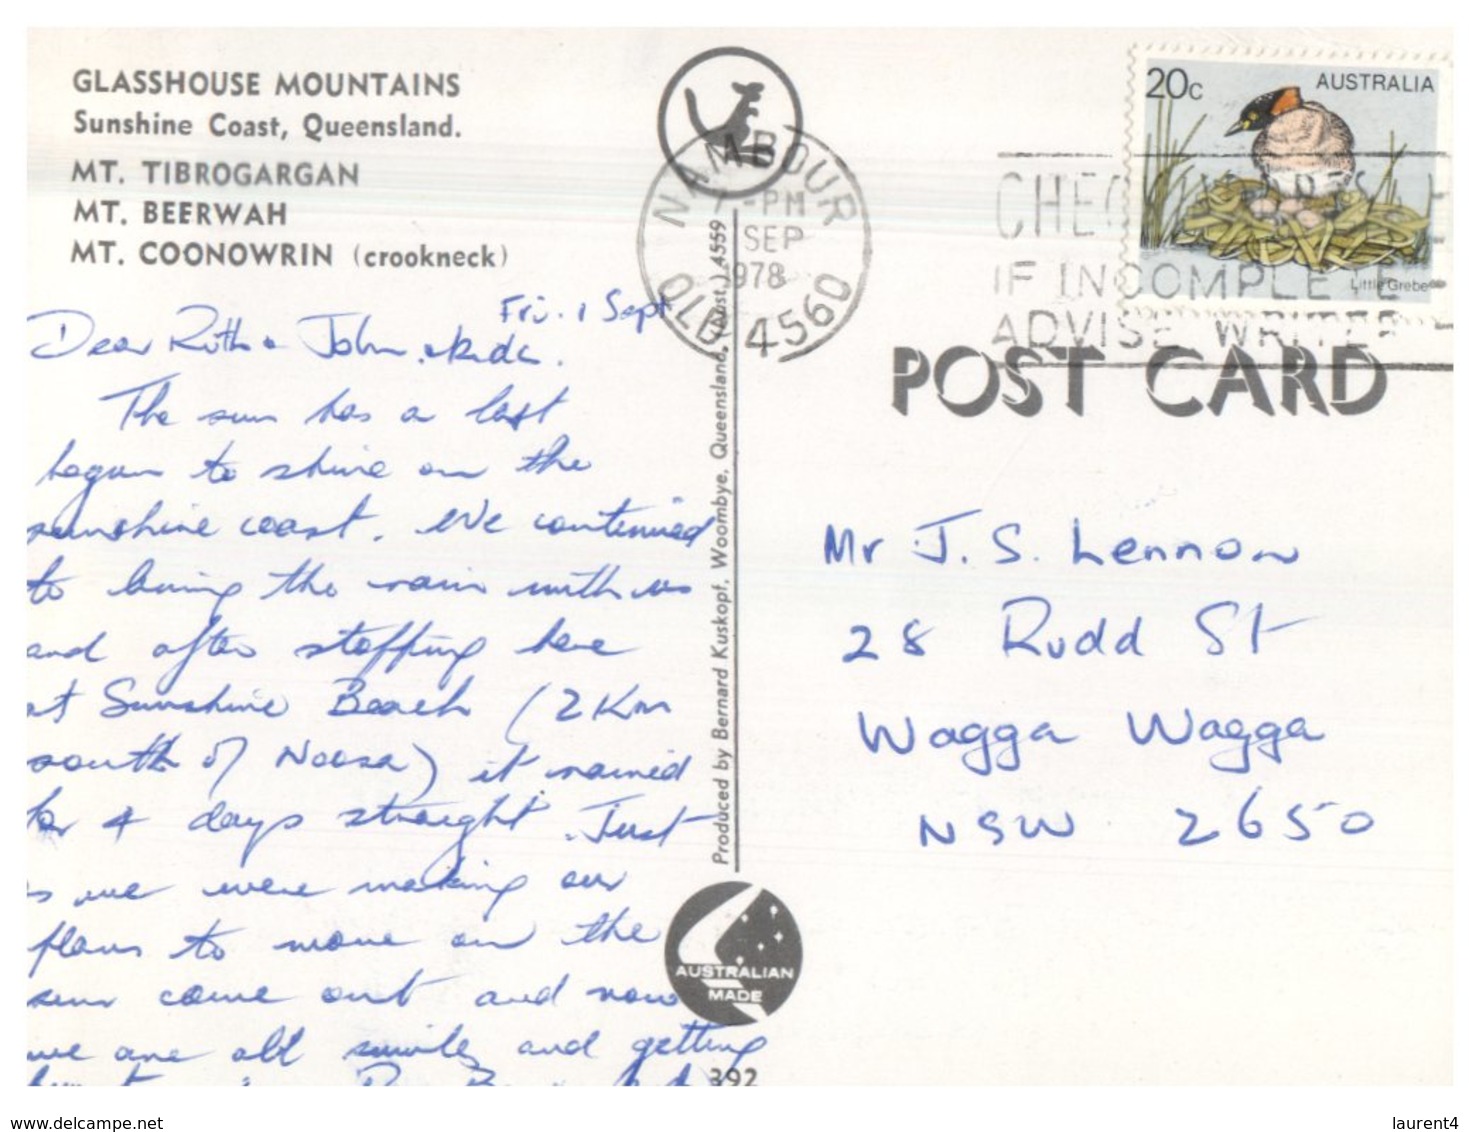 GLASSHOUSE MOUNTAINS
Sunshine Coast, Queensland.
MT. TIBROGARGAN
MT. BEERWAH
MT. COONOWRIN (crookneck)
Fri. 1 Sept
Dear Ruth & John & kids.
The sun has a last
begun to shine on the
sunshine coast. We continued
to bring the rain with us
and after stopping here
at Sunshine Beach (2 Km
south of Noosa) it rained
for 4 days straight. Just
as we were making our
plans to move on the
sun came out and now
we are all smiles and getting
Produced by Bernard Kuskopf, Woombye, Queensland, (Aust.) 4559
NAMBOUR
-PM
SEP
1978
QLD 4560
AUSTRALIAN
MADE
392
20c AUSTRALIA
Little Grebe
CHEC
IF INCOMPLETE
ADVISE WRITER
POST CARD
Mr J. S. Lennon
28 Rudd St
Wagga Wagga
NSW 2650
www.delcampe.net
laurent4